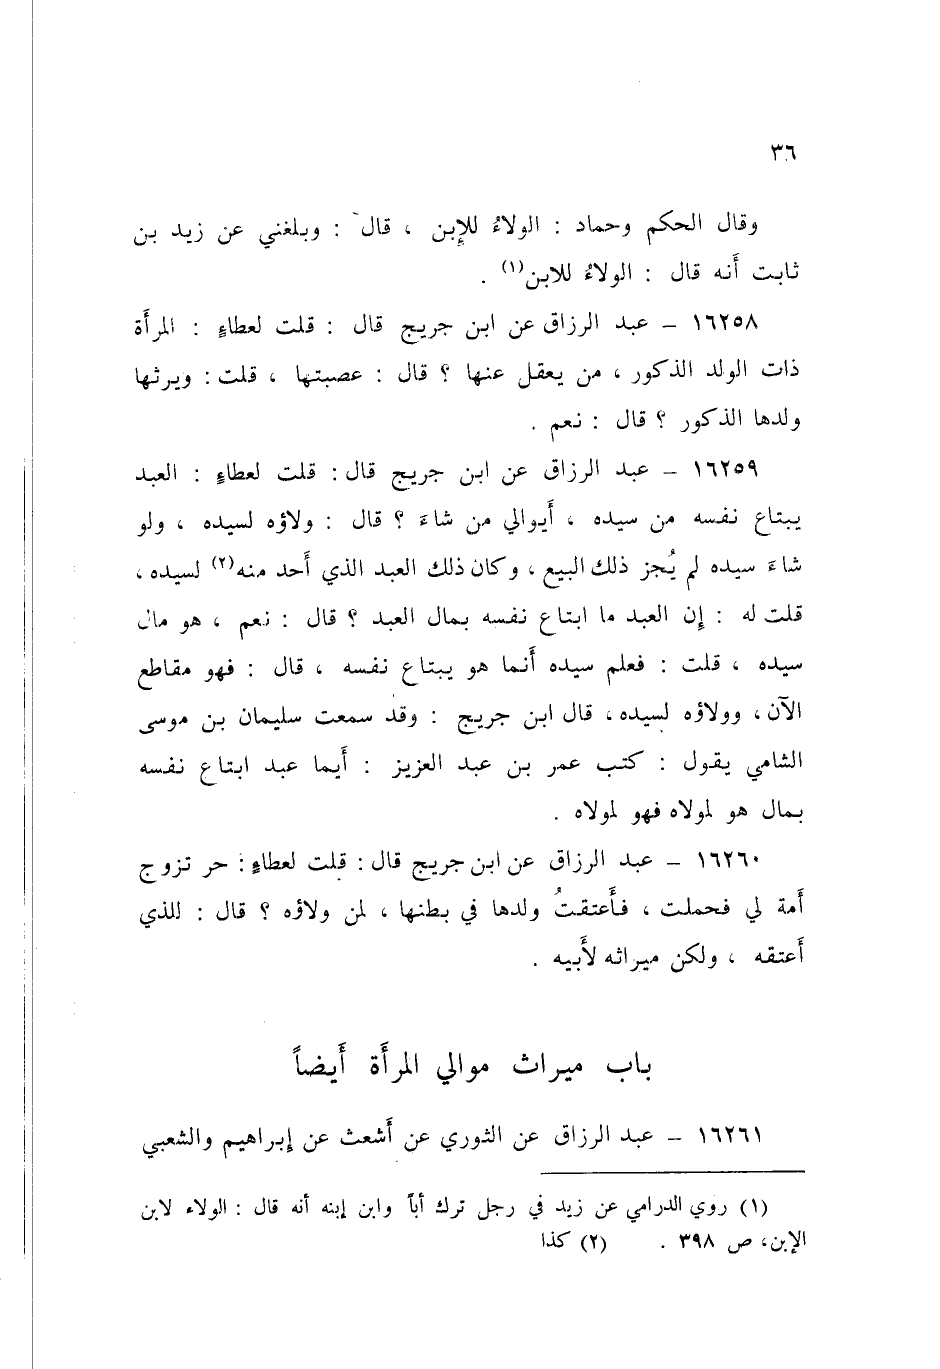 ٣٦
وقال الحكم وحماد : الولاءُ للإِبن ، قال : وبلغني عن زيد بن
ثابت أَنه قال : الولاءُ للابن(١) .
١٦٢٥٨ – عبد الرزاق عن ابن جريج قال : قلت لعطاءٍ : المرأَة
ذات الولد الذكور ، من يعقل عنها ؟ قال : عصبتها ، قلت : ويرثها
ولدها الذكور ؟ قال : نعم .
١٦٢٥٩ – عبد الرزاق عن ابن جريج قال : قلت لعطاءٍ : العبد
يبتاع نفسه من سيده ، أَيوالي من شاءَ ؟ قال : ولاؤه لسيده ، ولو
شاءَ سيده لم يُجز ذلك البيع ، وكان ذلك العبد الذي أَحد منه(٢) لسيده ،
قلت له : إِن العبد ما ابتاع نفسه بمال العبد ؟ قال : نعم ، هو مال
سيده ، قلت : فعلم سيده أَنما هو يبتاع نفسه ، قال : فهو مقاطع
الآن ، وولاؤه لسيده ، قال ابن جريج : وقد سمعت سليمان بن موسى
الشامي يقول : كتب عمر بن عبد العزيز : أَيما عبد ابتاع نفسه
بمال هو لمولاه فهو لمولاه .
١٦٢٦٠ – عبد الرزاق عن ابن جريج قال : قلت لعطاءٍ : حر تزوج
أَمة لي فحملت ، فأَعتقتُ ولدها في بطنها ، لمن ولاؤه ؟ قال : للذي
أَعتقه ، ولكن ميراثه لأَبيه .
باب ميراث موالي المرأَة أَيضاً
١٦٢٦١ – عبد الرزاق عن الثوري عن أَشعث عن إِبراهيم والشعبي
(١) روي الدرامي عن زيد في رجل ترك أباً وابن إبنه أنه قال : الولاء لابن
الإبن، ص ٣٩٨ . (٢) كذا